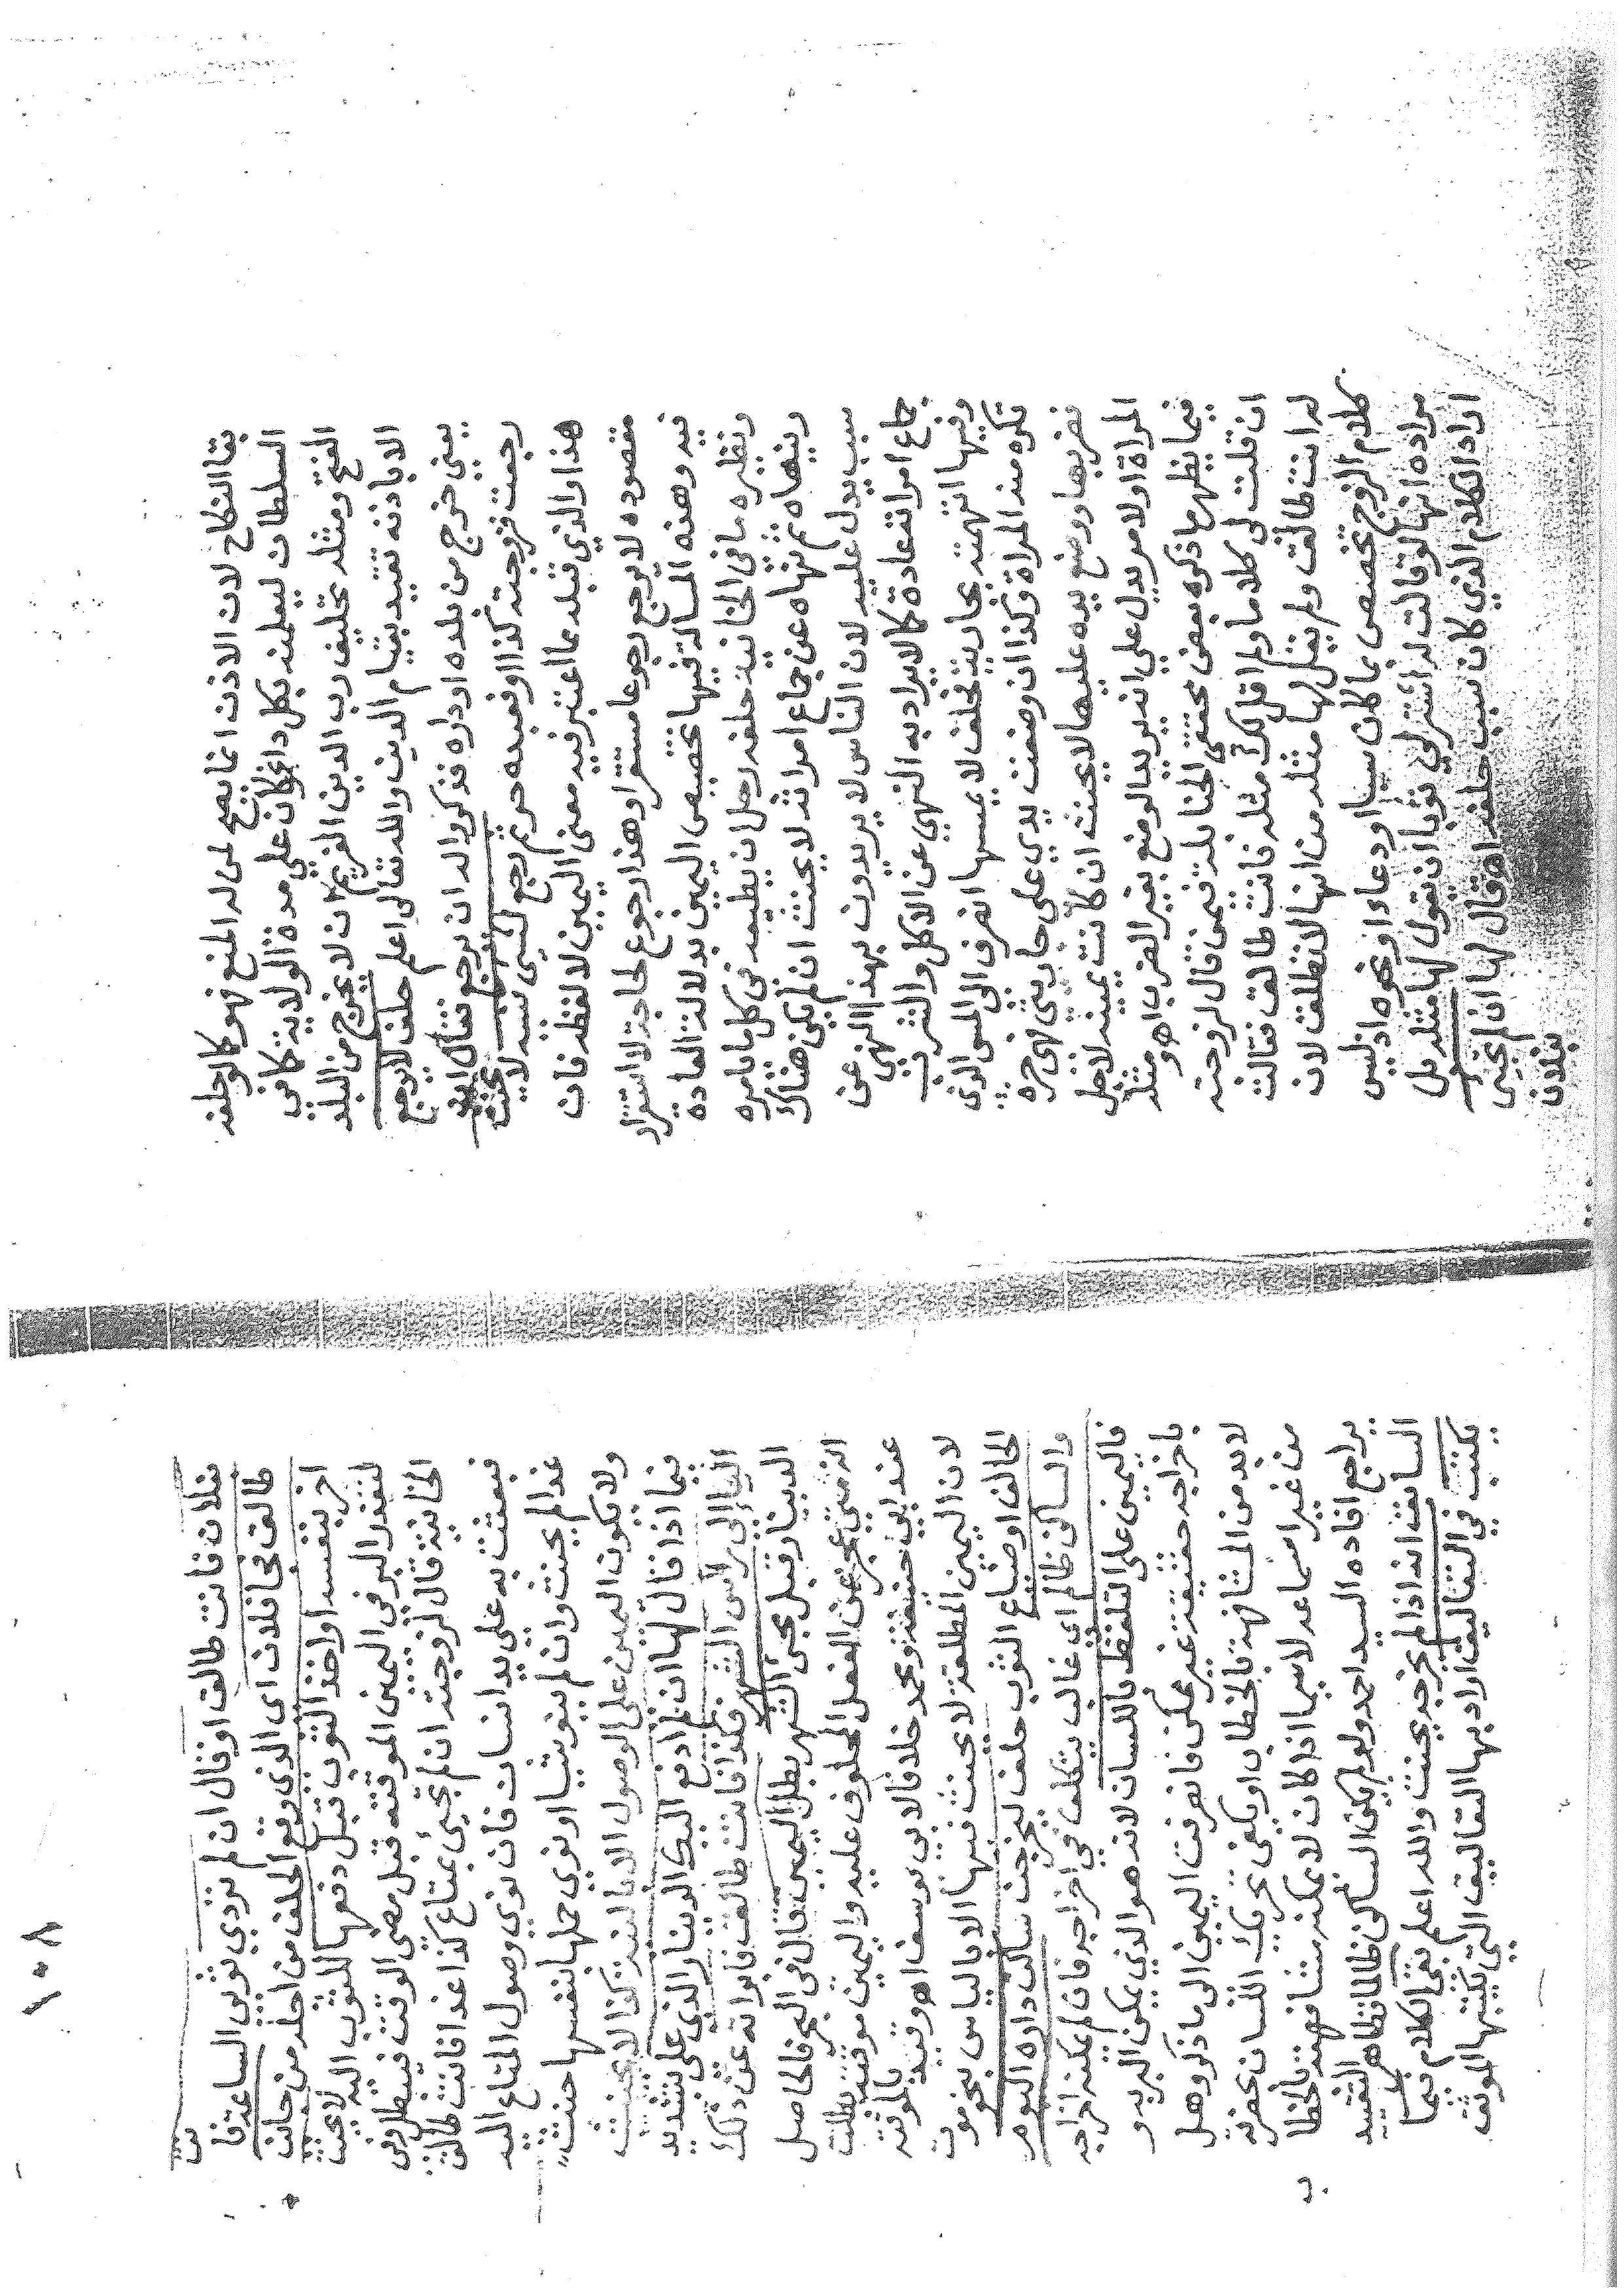 بقا النكاح لان الاذن انما يصح لمن له المنع فهو كما لو حلفه
السلطان ليعلمنه بكل داخل كان على مدة الولاية كما في
الفتح ومثله تحليف رب الدين الغريم ان لا يخرج من البلد
الا باذنه تقيد بقيام الدين والله تعالى اعلم حلف لا يرجع
يعني خرج من بلده او داره فذكروا له ان يرجع فقال
رجعت فزوجته كذا او فعبده حر ثم رجع لشي نسيه لا يحنث
هذا والذي قبله مما اعتبر فيه معنى اليمين لا لفظه فان
مقصوده لا يرجع رجوعا مستقرا وهذا رجوع لحاجة لا استقرار
فيه وهذه المسالة فيها تخصيص اليمين بدلالة العادة
ونظيره ما في الخانية حلفه رجل ان يطيعه في كل ما يامره
وينهاه ثم نهاه عن جماع امراته لا يحنث ان لم يكن هناك
سبب يدل عليه لان الناس لا يريدون بهذا النهي عن
جماع امراته عادة كما لا يراد به النهي عن الاكل والشرب
وفيها اتهمته بجارية فحلف لا يمسها انصرف الى المس الذي
تكره منه المراة وكذا ان وضعت يدي على جاريتي فهي حرة
فضربها ووضع يده عليها لا يحنث ان كانت يمينه لاجل
المراة او لامر يدل على انه يريد الوضع بغير الضرب اه ومثله
فيما يظهر ما ذكره بعض محققي الحنابلة فيمن قال لزوجته
ان قلت لي كلاما ولم اقل لك مثله فانت طالق فقالت
له انت طالق ولم يقل لها مثله من انها لا تطلق لان
كلام الزوج تخصص بما كان سبا او دعاء او نحوه اذ ليس
مراده انها لو قالت له اشتر لي ثوبا ان يقول لها مثله بل
اراد الكلام الذي كان سبب حلفه اه قال لها ان لم تجيي
بفلان
١٠٨
بفلان فانت طالق او قال ان لم تردي ثوبي الساعة فانت
طالق فجا فلان اي الذي وقع الحلف من اجله من جانب
اخر بنفسه او اخذ الثوب قبل دفعها للثوب اليه لا يحنث
لتعذر البر في اليمين الموقتة قبل مضي الوقت فيبطل وفي
الخانية قال لزوجته ان لم تجيئ بمتاع كذا غدا فانت طالق
فبعثت به على يد انسان فان نوى وصول المتاع اليه
غدا لم يحنث وان لم ينو شيا او نوى حملها بنفسها حنث
ولا يكون اليمين على الوصول الا بالنية كذا لا يحنث
فيما اذا قال لها ان لم ادفع اليك الدينار الذي علي
الى راس الشهر فكذا فانت طالق فابراته عن ذلك
الدينار قبل مجيئ الشهر بطل اليمين قال في البحر فالحاصل
انه متى عجز عن الفعل المحلوف عليه واليمين موقتة بطلت
عند ابي حنيفة ومحمد خلافا لابي يوسف اه وقيد بالموقتة
لان اليمين المطلقة لا يحنث فيها الا بالياس بنحو موت
الحالف او ضياع الثوب حلف ليخرجن ساكن داره اليوم
والساكن ظالم اي غالب يتكلف في اخراجه فان لم يمكنه اخراجه
فاليمين على التلفظ باللسان لانه هو الذي يمكن البر به و
باخراجه حقيقة غير ممكن فانصرفت اليمين الى ما ذكر وهل
لا بد من المشافهة بالخطاب او يكفي تحريك اللسان بحضرته
من غير اسماعه لا سيما اذا كان لا يمكنه مشافهته بالخطاب
يراجع افاده السيد احمد ولو لم يكن الساكن ظالما فظاهر التقييد
السابق انه اذا لم يخرجه يحنث والله اعلم بقي الكلام فيما
يكتب في التعاليق اراد بها التعاليق التي يكتبها الموثق